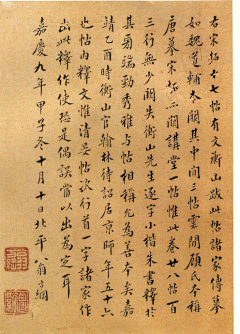 右宋拓十七帖有文衡山跋此帖諸家傳摹
如魏道輔太原其中間三帖雲間顧氏本稱
唐摹宋拓亦闕講堂一帖惟此卷廿八帖百
三行無少闕失衡山先生逐字小楷朱書釋於
其旁端勁秀雅與帖相稱尤為善本矣嘉
靖乙酉時衡山官翰林待詔居京師年五十六
也帖內釋文惟清晏帖次行首一字諸家作
出此釋作使恐是偶誤當以出為定耳
嘉慶九年甲子冬十月十日北平翁方綱